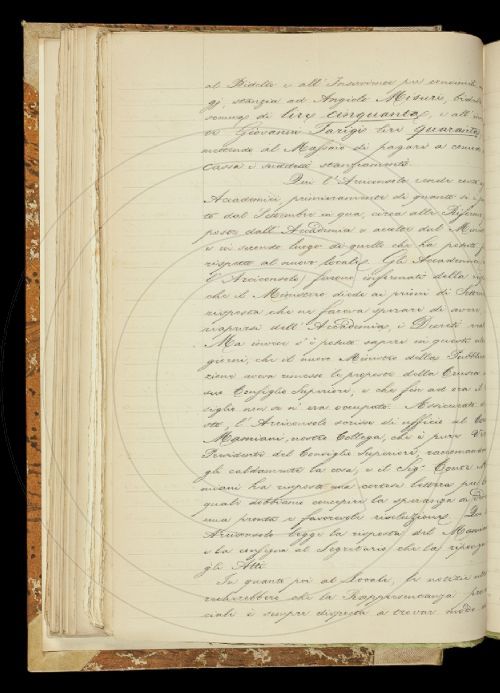 al Bidello e all' Inserviente per
stanzia ad Angiolo Misuri,
somma di lire cinquanta, e all'
te Giovanni Parigi lire quaranta,
mettendo al Massaio di pagare a
Cassa i suddetti stanziamenti.
Qui l'Arciconsolo rende
Accademici primieramente di quanto si è
to dal Settembre in qua, circa alle
poste dall' Accademia e accolte dal
e in secondo luogo di quello che ha potuto
rispetto al nuovo locale. Gli Accademici,
l'Arciconsolo) furono informati della
che il Ministero diede ai primi di
risposta che ne faceva sperare di avere
riapersa dell' Accademia, i Decreti
Ma invece s'è potuto sapere in questi
giorni, che il nuovo Ministro della Pubbl
zione aveva rimesse le proposte della Crusca
suo Consiglio Superiore, e che fin ad ora il
siglio non se n'era occupato. Assicurati
sto, l'Arciconsolo scrisse di ufficio al
Mamiani, nostro Collega, che è pure
Presidente del Consiglio Superiore, raccomandando
gli caldamente la cosa, e il Sig.r Conte
miani ha risposto una cortese lettera per
quale dobbiamo concepire la speranza di
una pronta e favorevole risoluzione.
Arciconsolo legge la risposta del Mamia
e la consegna al Segretario, che la
gli Atti.
In quanto poi al Locale, le notizie
recherebbero che la Rappresentanza
ciale è sempre disposta a trovar modo